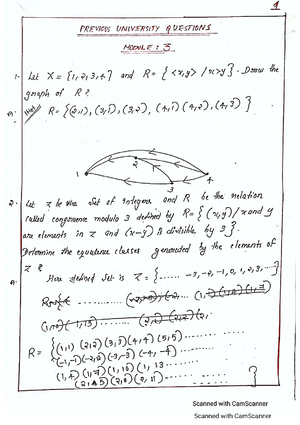 1
PREVIOUS UNIVERSITY QUESTIONS
MODULE : 3
1. Let X = {1, 2, 3, 4} and R = {<x, y> / x > y}. Draw the
graph of R ?
R = {(2,1), (3,1), (3,2), (4,1) (4,2), (4,3)}
2
1
4
3
2. Let Z be the set of integers and R be the relation
called congruence modulo 3 defined by R = {(x, y) / x and y
are elements in Z and (x-y) is divisible by 3}.
Determine the equivalence classes generated by the elements of
Z ?
Here defined set is Z = {...... -3, -2, -1, 0, 1, 2, 3, ...}
R = {(1,1) (2,2) (3,3) (4,4) (5,5) ..........
(-1,-1) (-2,-2) (-3,-3) (-4,-4) ..........
(1,4) (1,7) (1,10) (1,13 ..........
(2,5) (2,8) (2,11) .......... }
Scanned with CamScanner
Scanned with CamScanner